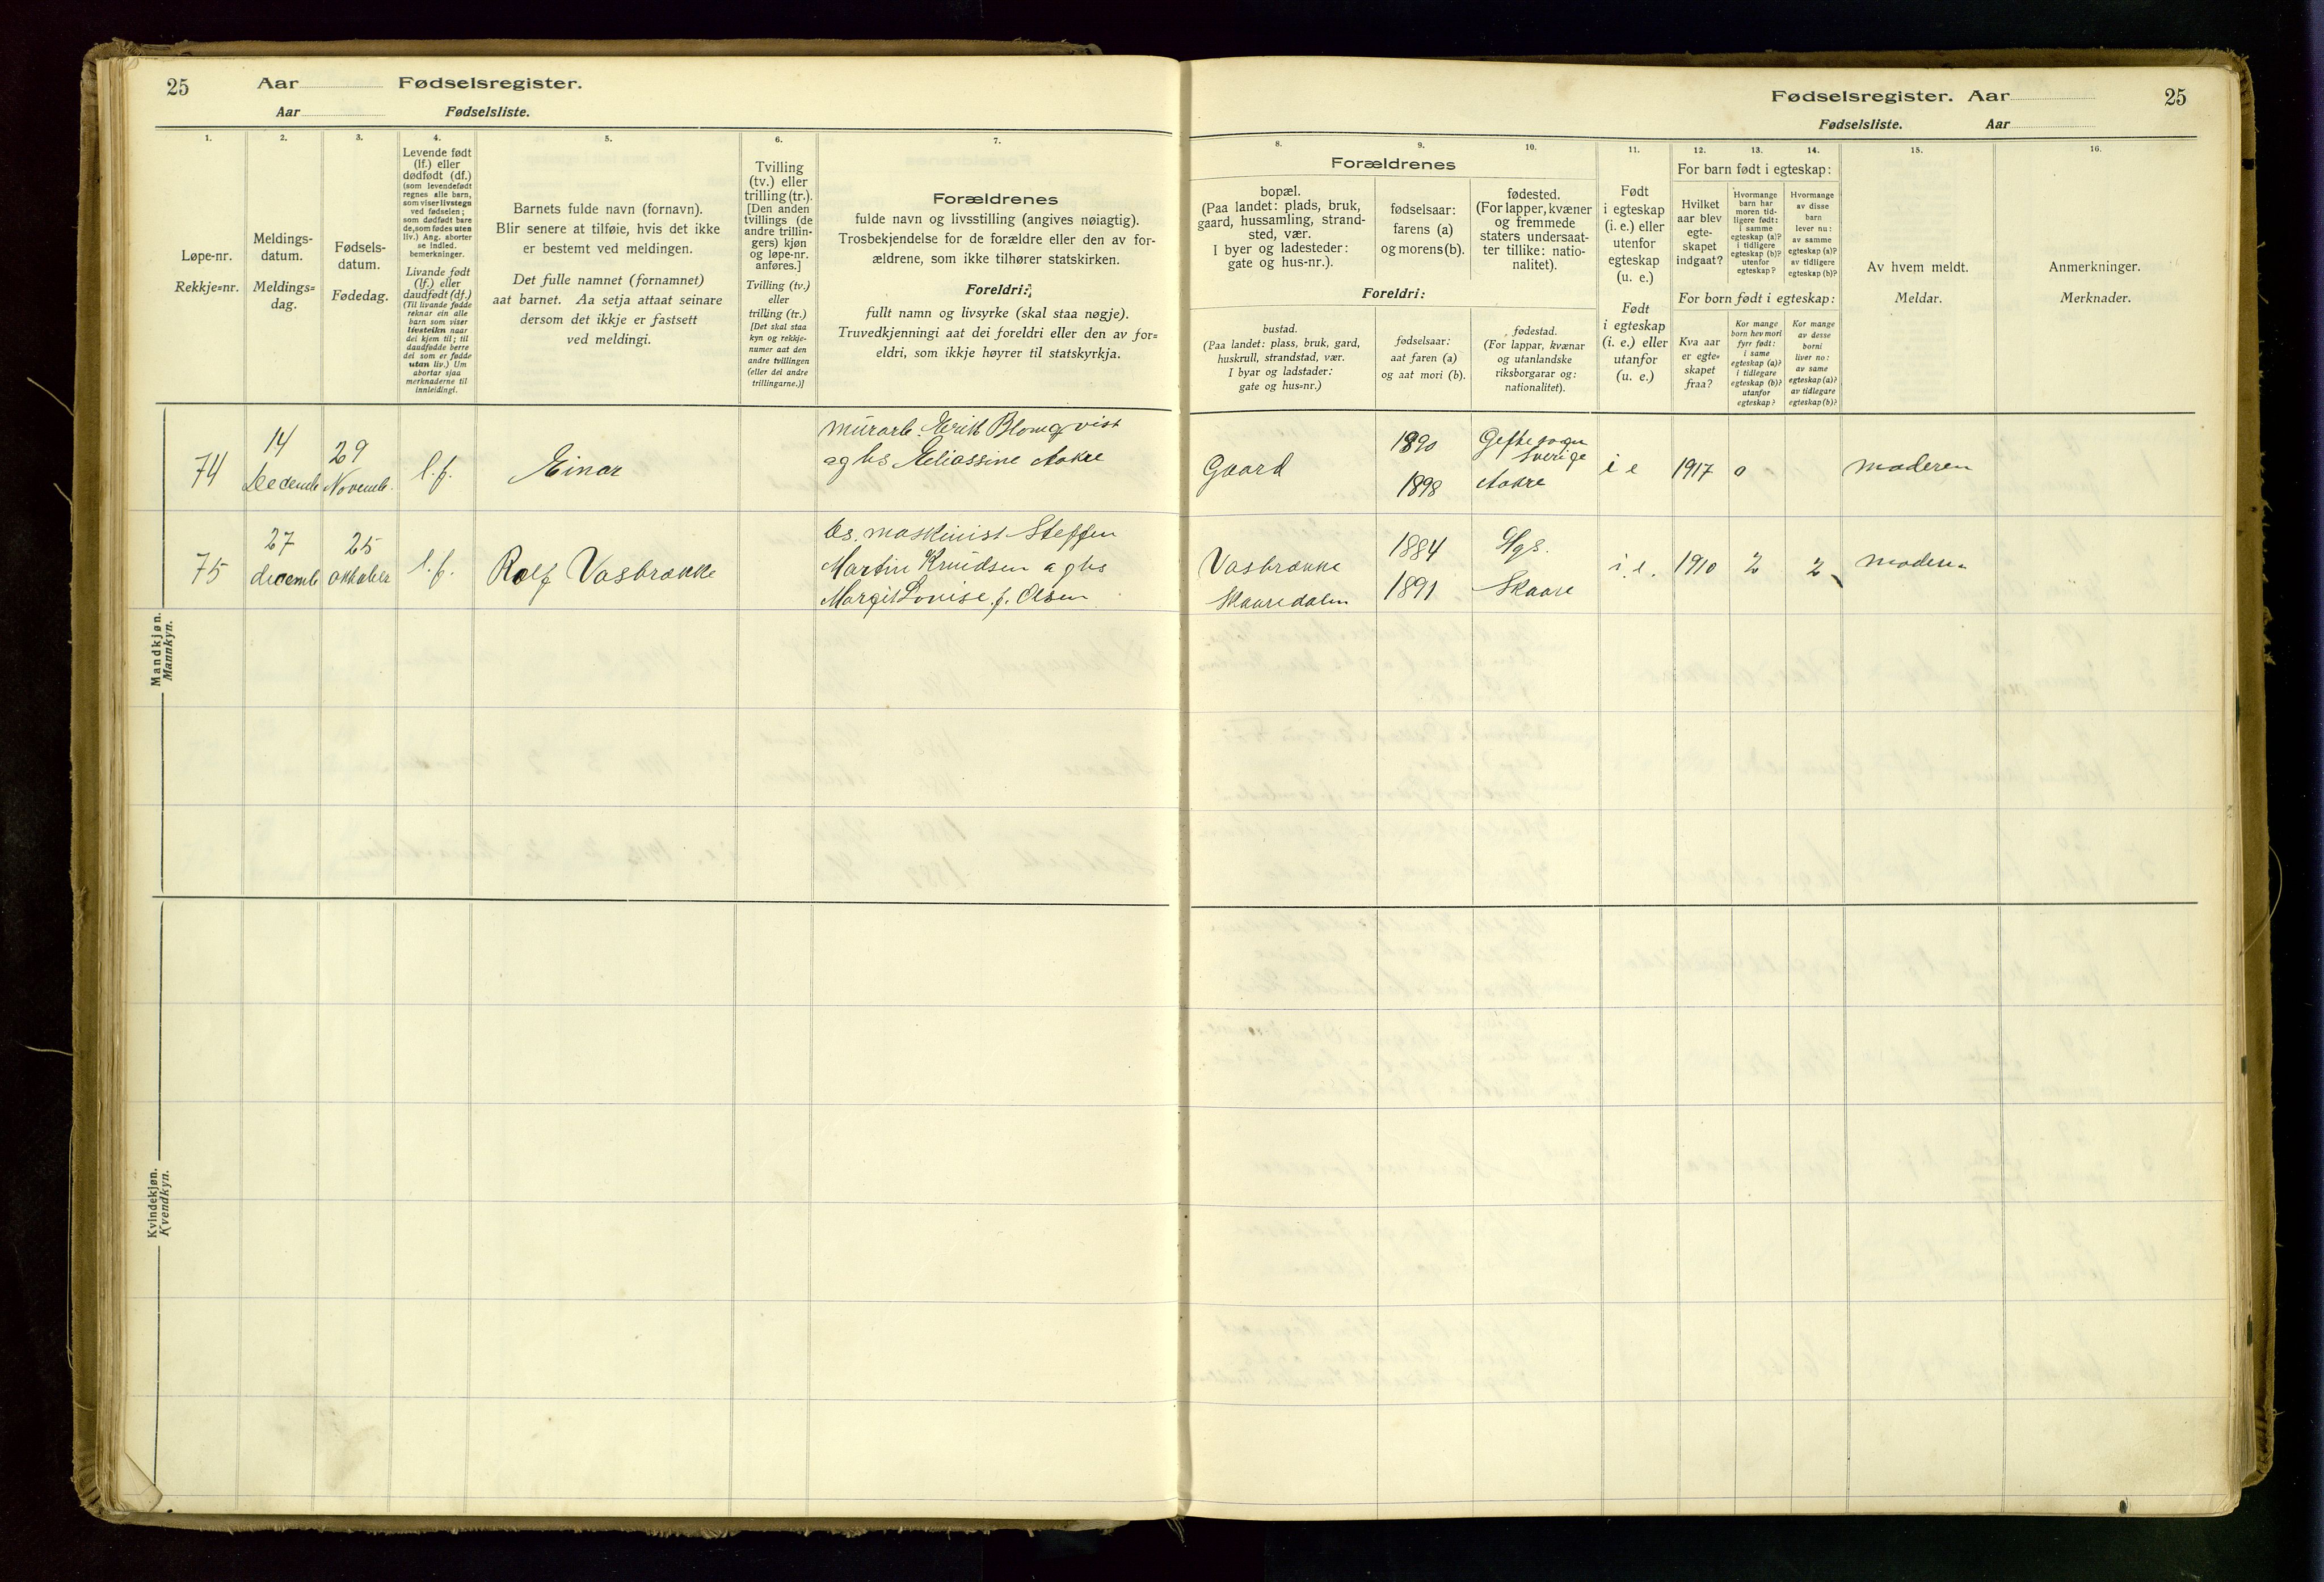 25 Aar Fødselsregister.
Aar Fødselsliste.
1.
Løpe-nr.
Rekkje=nr.
2.
Meldings-
datum.
Meldings=
dag.
3.
Fødsels-
datum.
Fødedag.
4.
Levende født
(lf.) eller
dødfødt (df.)
(som levendefødt
regnes alle barn,
som viser livstegn
ved fødselen;
som dødfødt bare
de, som fødes uten
liv.) Ang. aborter
se indled.
bemerkninger.
Livande født
(lf.) eller
daudfødt (df.)
(Til livande fødde
reknar ein alle
born som viser
livsteikn naar
dei kjem til; til
daudfødde berre
dei som er fødde
utan liv.) Um
abortar sjaa
merknaderne til
innleidingi.
5.
Barnets fulde navn (fornavn).
Blir senere at tilføie, hvis det ikke
er bestemt ved meldingen.
Det fulle namnet (fornamnet)
aat barnet. Aa setja attaat seinare
dersom det ikkje er fastsett
ved meldingi.
6.
Tvilling
(tv.) eller
trilling (tr.).
[Den anden
tvillings (de
andre trillin-
gers) kjøn
og løpe-nr.
anføres.]
Tvilling (tv.)
eller
trilling (tr.)
[Det skal staa
kyn og rekkje-
numer aat den
andre tvillingen
(eller dei andre
trillingarne.)]
7.
Forældrenes
fulde navn og livsstilling (angives nøiagtig).
Trosbekjendelse for de forældre eller den av for-
ældrene, som ikke tilhører statskirken.
Foreldri:
fullt namn og livsyrke (skal staa nøgje).
Truvedkjenningi aat dei foreldri eller den av for=
eldri, som ikkje høyrer til statskyrkja.
Mandkjøn.
Mannkyn.
74
14
Decemb
29
Novemb.
l.f.
Einar
murarb. Erik Blomqvist
og hs Eeliassine Aakre
75
27
decemb
25
oktober
l.f.
Rolf Vasbrække
bs. maskinist Steffen
Martin Knudsen og hs
Margit Lovise f. Olsen
Kvindekjøn.
Kvendkyn.
Fødselsregister. Aar 25
Fødselsliste. Aar
Forældrenes
8.
bopæl.
(Paa landet: plads, bruk,
gaard, hussamling, strand-
sted, vær.
I byer og ladesteder:
gate og hus-nr.).
9.
fødselsaar:
farens (a)
og morens (b).
10.
fødested.
(For lapper, kvæner
og fremmede
staters undersaat-
ter tillike: natio-
nalitet).
Foreldri:
bustad.
(Paa landet: plass, bruk, gard,
huskrull, strandstad, vær.
I byar og ladstader:
gate og hus=nr.)
fødselsaar:
aat faren (a)
og aat mori (b).
fødestad.
(For lappar, kvænar
og utanlandske
riksborgarar og:
nationalitet).
11.
Født
i egteskap
(i. e.) eller
utenfor
egteskap
(u. e.)
Født
i egteskap
(i. e.) eller
utanfor
(u. e.)
For barn født i egteskap:
12.
Hvilket
aar blev
egte-
skapet
indgaat?
13.
Hvormange
barn har
moren tid-
ligere født:
i samme
egteskap (a)?
i tidligere
egteskap (b)?
utenfor
egteskap?
14.
Hvormange
av disse
barn
lever nu:
av samme
egteskap (a)?
av tidligere
egteskap (b)?
For born født i egteskap:
Kva aar
er egte=
skapet
fraa?
Kor mange
born hev mori
fyrr født:
i same
egteskap (a)?
i tidlegare
egteskap (b)?
utanfor
egteskap?
Kor mange
av desse
borni
liver no:
av same
egteskap (a)?
av tidlegare
egteskap (b)?
15.
Av hvem meldt.
Meldar.
16.
Anmerkninger.
Merknader.
Gaard
1890
1898
Gefle sogn
Sverige
Aakre
i e
1917
0
moderen
Vasbrække
Skaaredalen
1884
1891
Hgs.
Skaare
i.e.
1910
2
2
moderen